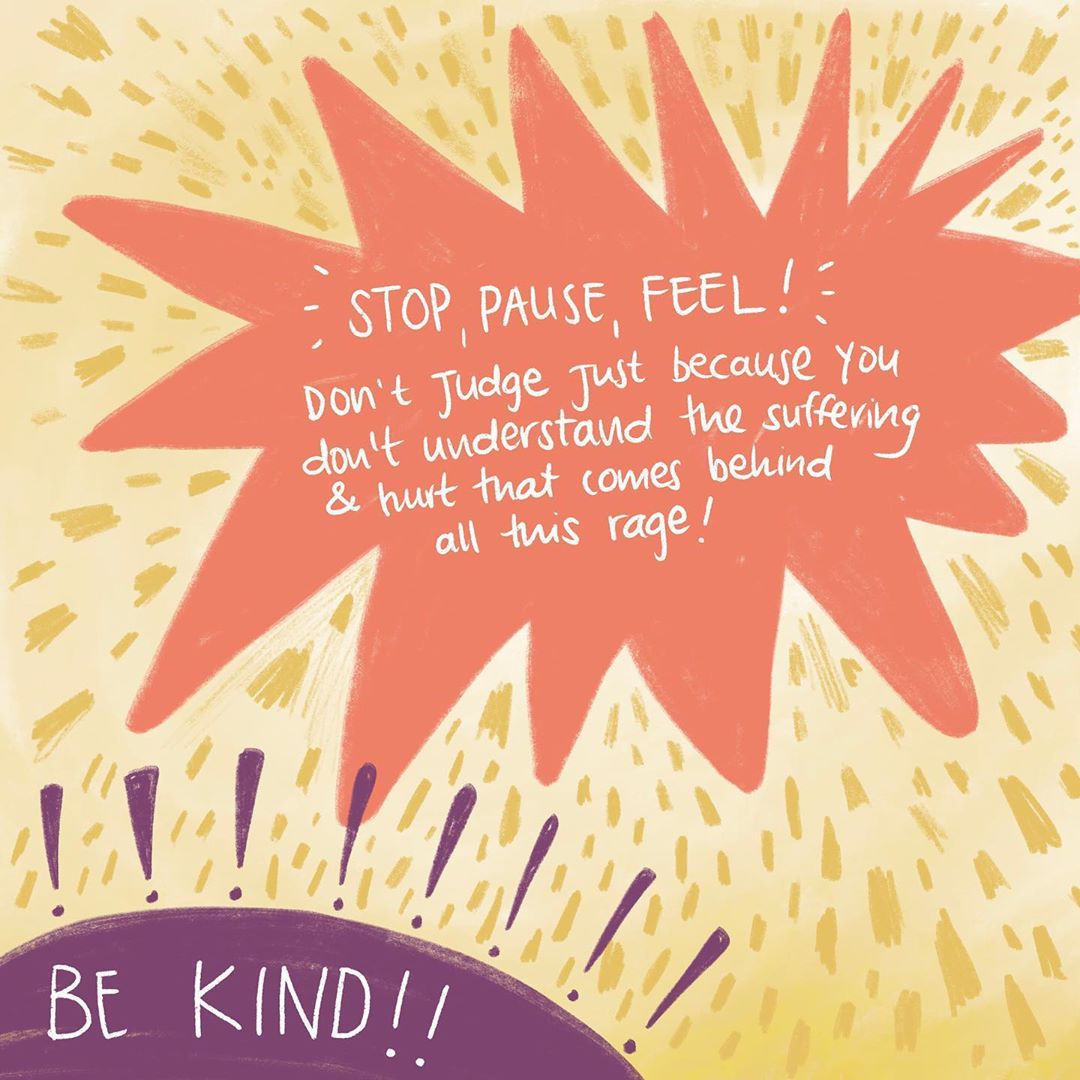 STOP, PAUSE, FEEL!
Don't Judge Just because you
don't understand the suffering
& hurt that comes behind
all this rage!
BE KIND!!